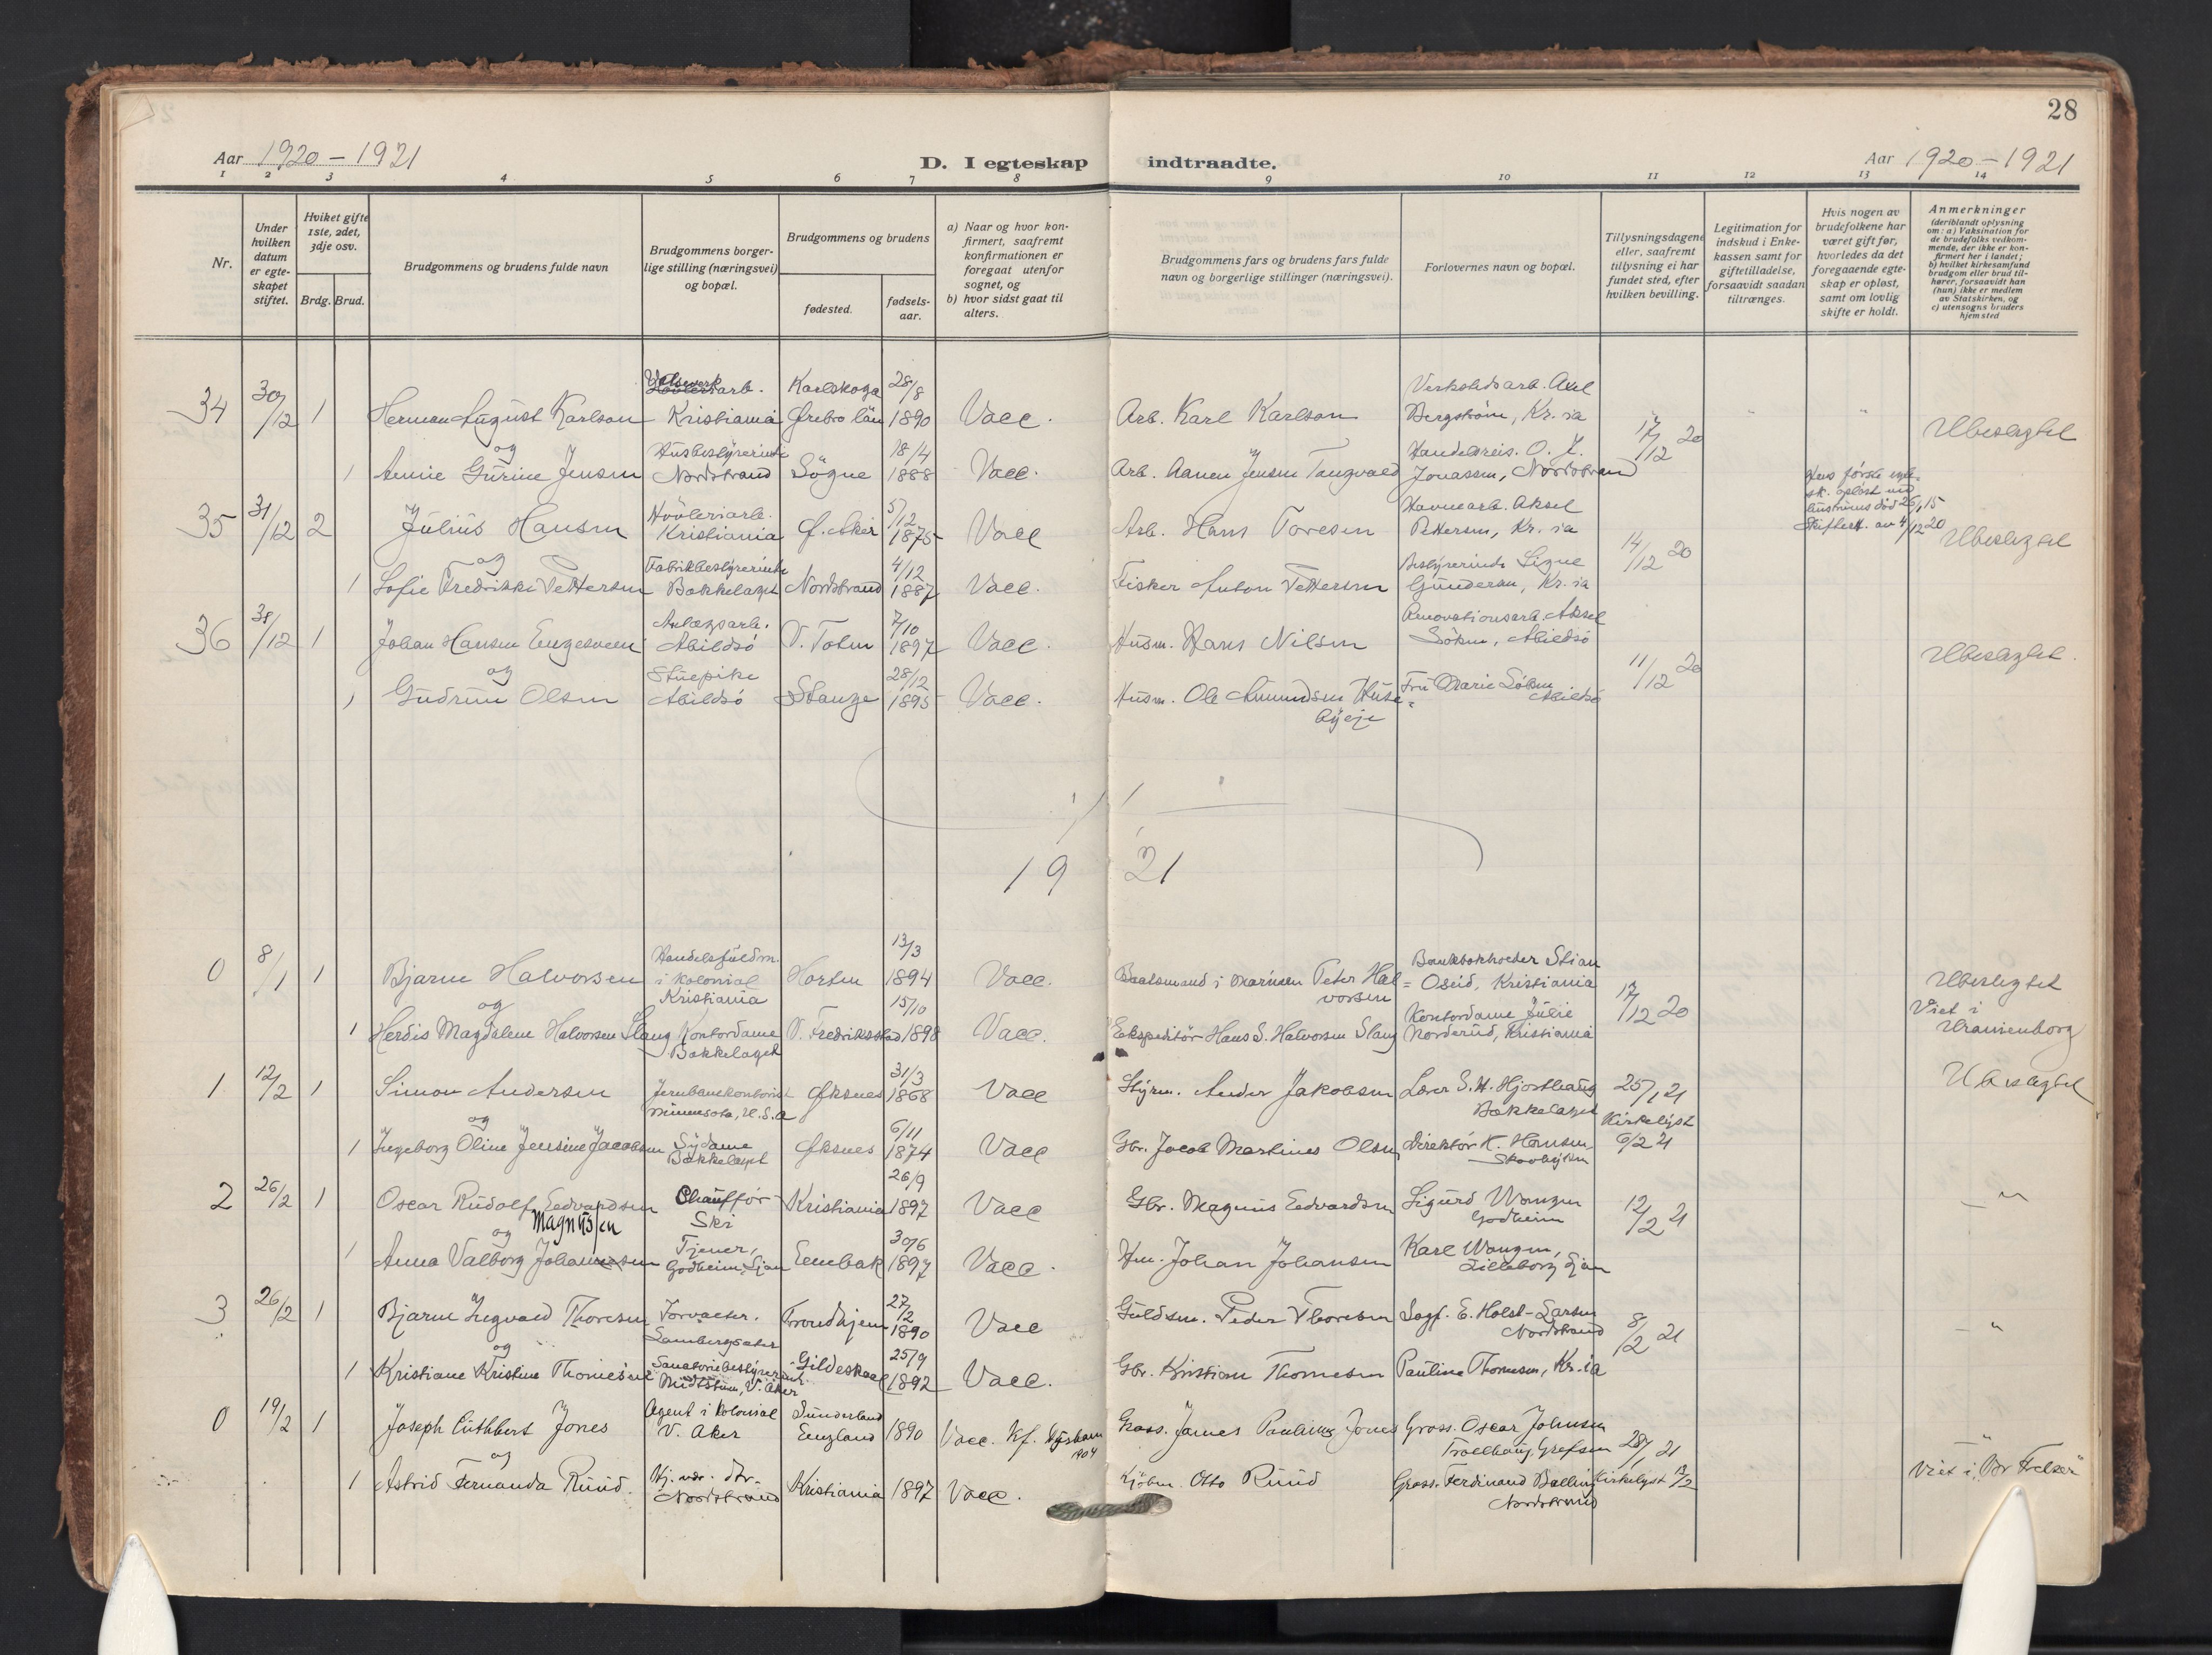 28
Aar 1920 - 1921
D. I egteskap
indtraadte.
Aar 1920 - 1921
1 2 3 4 5 6 7 8 9 10 11 12 13 14
Nr.
Under
hvilken
datum
er egte-
skapet
stiftet.
Hviket gifte
1ste, 2det,
3dje osv.
Brdg. Brud.
Brudgommens og brudens fulde navn
Brudgommens borger-
lige stilling (næringsvei)
og bopæl.
Brudgommens og brudens
fødested.
fødsels-
aar.
a) Naar og hvor kon-
firmert, saafremt
konfirmationen er
foregaat utenfor
sognet, og
b) hvor sidst gaat til
alters.
Brudgommens fars og brudens fars fulde
navn og borgerlige stillinger (næringsvei).
Forlovernes navn og bopæl.
Tillysningsdagene
eller, saafremt
tillysning ei har
fundet sted, efter
hvilken bevilling.
Legitimation for
indskud i Enke-
kassen samt for
giftetilladelse,
forsaavidt saadan
tiltrænges.
Hvis nogen av
brudefolkene har
været gift før,
hvorledes da det
foregaaende egte-
skap er opløst,
samt om lovlig
skifte er holdt.
Anmerkninger
(deriblandt oplysning
om: a) Vaksination for
de brudefolks vedkom-
mende, der ikke er kon-
firmert her i landet;
b) hvilket kirkesamfund
brudgom eller brud til-
hører, forsaavidt han
(hun) ikke er medlem
av Statskirken, og
c) utensogns bruders
hjemsted
Valseverk
arb. Karlskoga 28/8 Verkstedsarb. Axel
34 30/12 1 Herman August Karlson Kristiania Ørebro län 1890 Vacc. Arb. Karl Karlson Bergström, Kr.ia 17/12 20 Ubeslegtet
og Husbestyrerinde 18/4 Handelsreis. O. J.
1 Annie Gurine Jensen Nordstrand Søgne 1888 Vacc. Arb. Aanen Jensen Tangvald Jonassen, Nordstrand
Hans første egte-
sk. opløst ved
hustruens død 26/1 15
Skifteatt. av 4/12 20
35 31/12 2 Julius Hansen Høvleriarb. Kristiania Ø. Aker 5/12 1875 Vacc Arb. Hans Toresen Havnearb. Aksel Pettersen, Kr.ia 14/12 20 Ubeslegtet
og Fabrikbestyrerinde 4/12 Bestyrerinde Signe
1 Sofie Fredrikke Pettersen Bækkelaget Nordstrand 1887 Vacc. Fisker Anton Pettersen Gundersen, Kr.ia
Anlægsarb. 7/10 Renovationsarb. Aksel
36 31/12 1 Johan Hansen Engesveen Abildsø V. Toten 1897 Vacc. Husm. Hans Nilsen Abildsø 11/12 20 Ubeslegtet.
og Stuepike 28/12
1 Gudrun Olsen Abildsø Stange 1895 Vacc. Husm. Ole Amundsen Huse-
byeje Fru Marie Abildsø
19 21
Handelsfuldm. 13/3 Bankbokholder Stian
0 8/1 1 Bjarne Halvorsen i kolonial Horten 1894 Vacc. Baatsmand i Marinen Peter Hal- Oseid, Kristiania Ubeslegtet
og Kristiania 15/10 vorsen 17/12 20 Viet i
1 Herdis Magdalene Halvorsen Slang Kontordame V. Fredrikstad 1898 Vacc. Ekspeditør Hans S. Halvorsen Slang Kontordame Julie Norderud, Kristiania Uranienborg
Bækkelaget
1 12/2 1 Simon Andersen Jernbanekontorist Øksnes 31/3 1868 Vacc Styrm. Ander Jakobsen Lærer S. H. Hjorthaug 25/1 21 Ubeslegtet
og Minnesota, U.S.A Bækkelaget Kirkelyst
1 Ingeborg Oline Jensine Jacobsen Sydame Bækkelaget Øksnes 6/11 1874 Vacc Gbr. Jacob Martinus Olsen Direktør K. Hansen 6/2 21
2 26/2 1 Oscar Rudolf Edvardsen Chauffør Ski Kristiania 26/9 1897 Vacc Gbr. Magnus Edvardsen Sigurd Wangen Godheim 12/2 21 — " —
Magnussen
og
1 Anna Valborg Johannesen Tjener, Godheim, Ljan Enebak 30/6 1897 Vacc. Hm. Johan Johansen Karl Wangen, Lilleborg Ljan
3 26/2 1 Bjarne Ingvald Thoresen Forvalter. Trondhjem 27/2 1890 Vacc Guldsm. Peder Thoresen Sagf. E. Holst-Larsen Nordstrand 8/2 21 — " —
og
1 Kristiane Kristine Thomesen Sanatoriebestyrerinde Midtstuen, V. Aker Gildeskaal 25/9 1892 Vacc. Gbr. Kristian Thomesen Pauline Thomesen, Kr.ia
0 19/2 1 Joseph Cuthbert Jones Agent i kolonial V. Aker Sunderland England 1890 Vacc. Kf. 1904 Gross. James Jones Gross. Oscar Johnsen Trollhaug, Grefsen 28/1 21 "
og
1 Astrid Fernanda Ruud. Hj. vær. dtr. Nordstrand Kristiania 1897 Vacc. Kjøbm. Otto Ruud Gross. Ferdinand Balling Nordstrand Kirkelyst 13/2 Viet i "Vor Frelser"